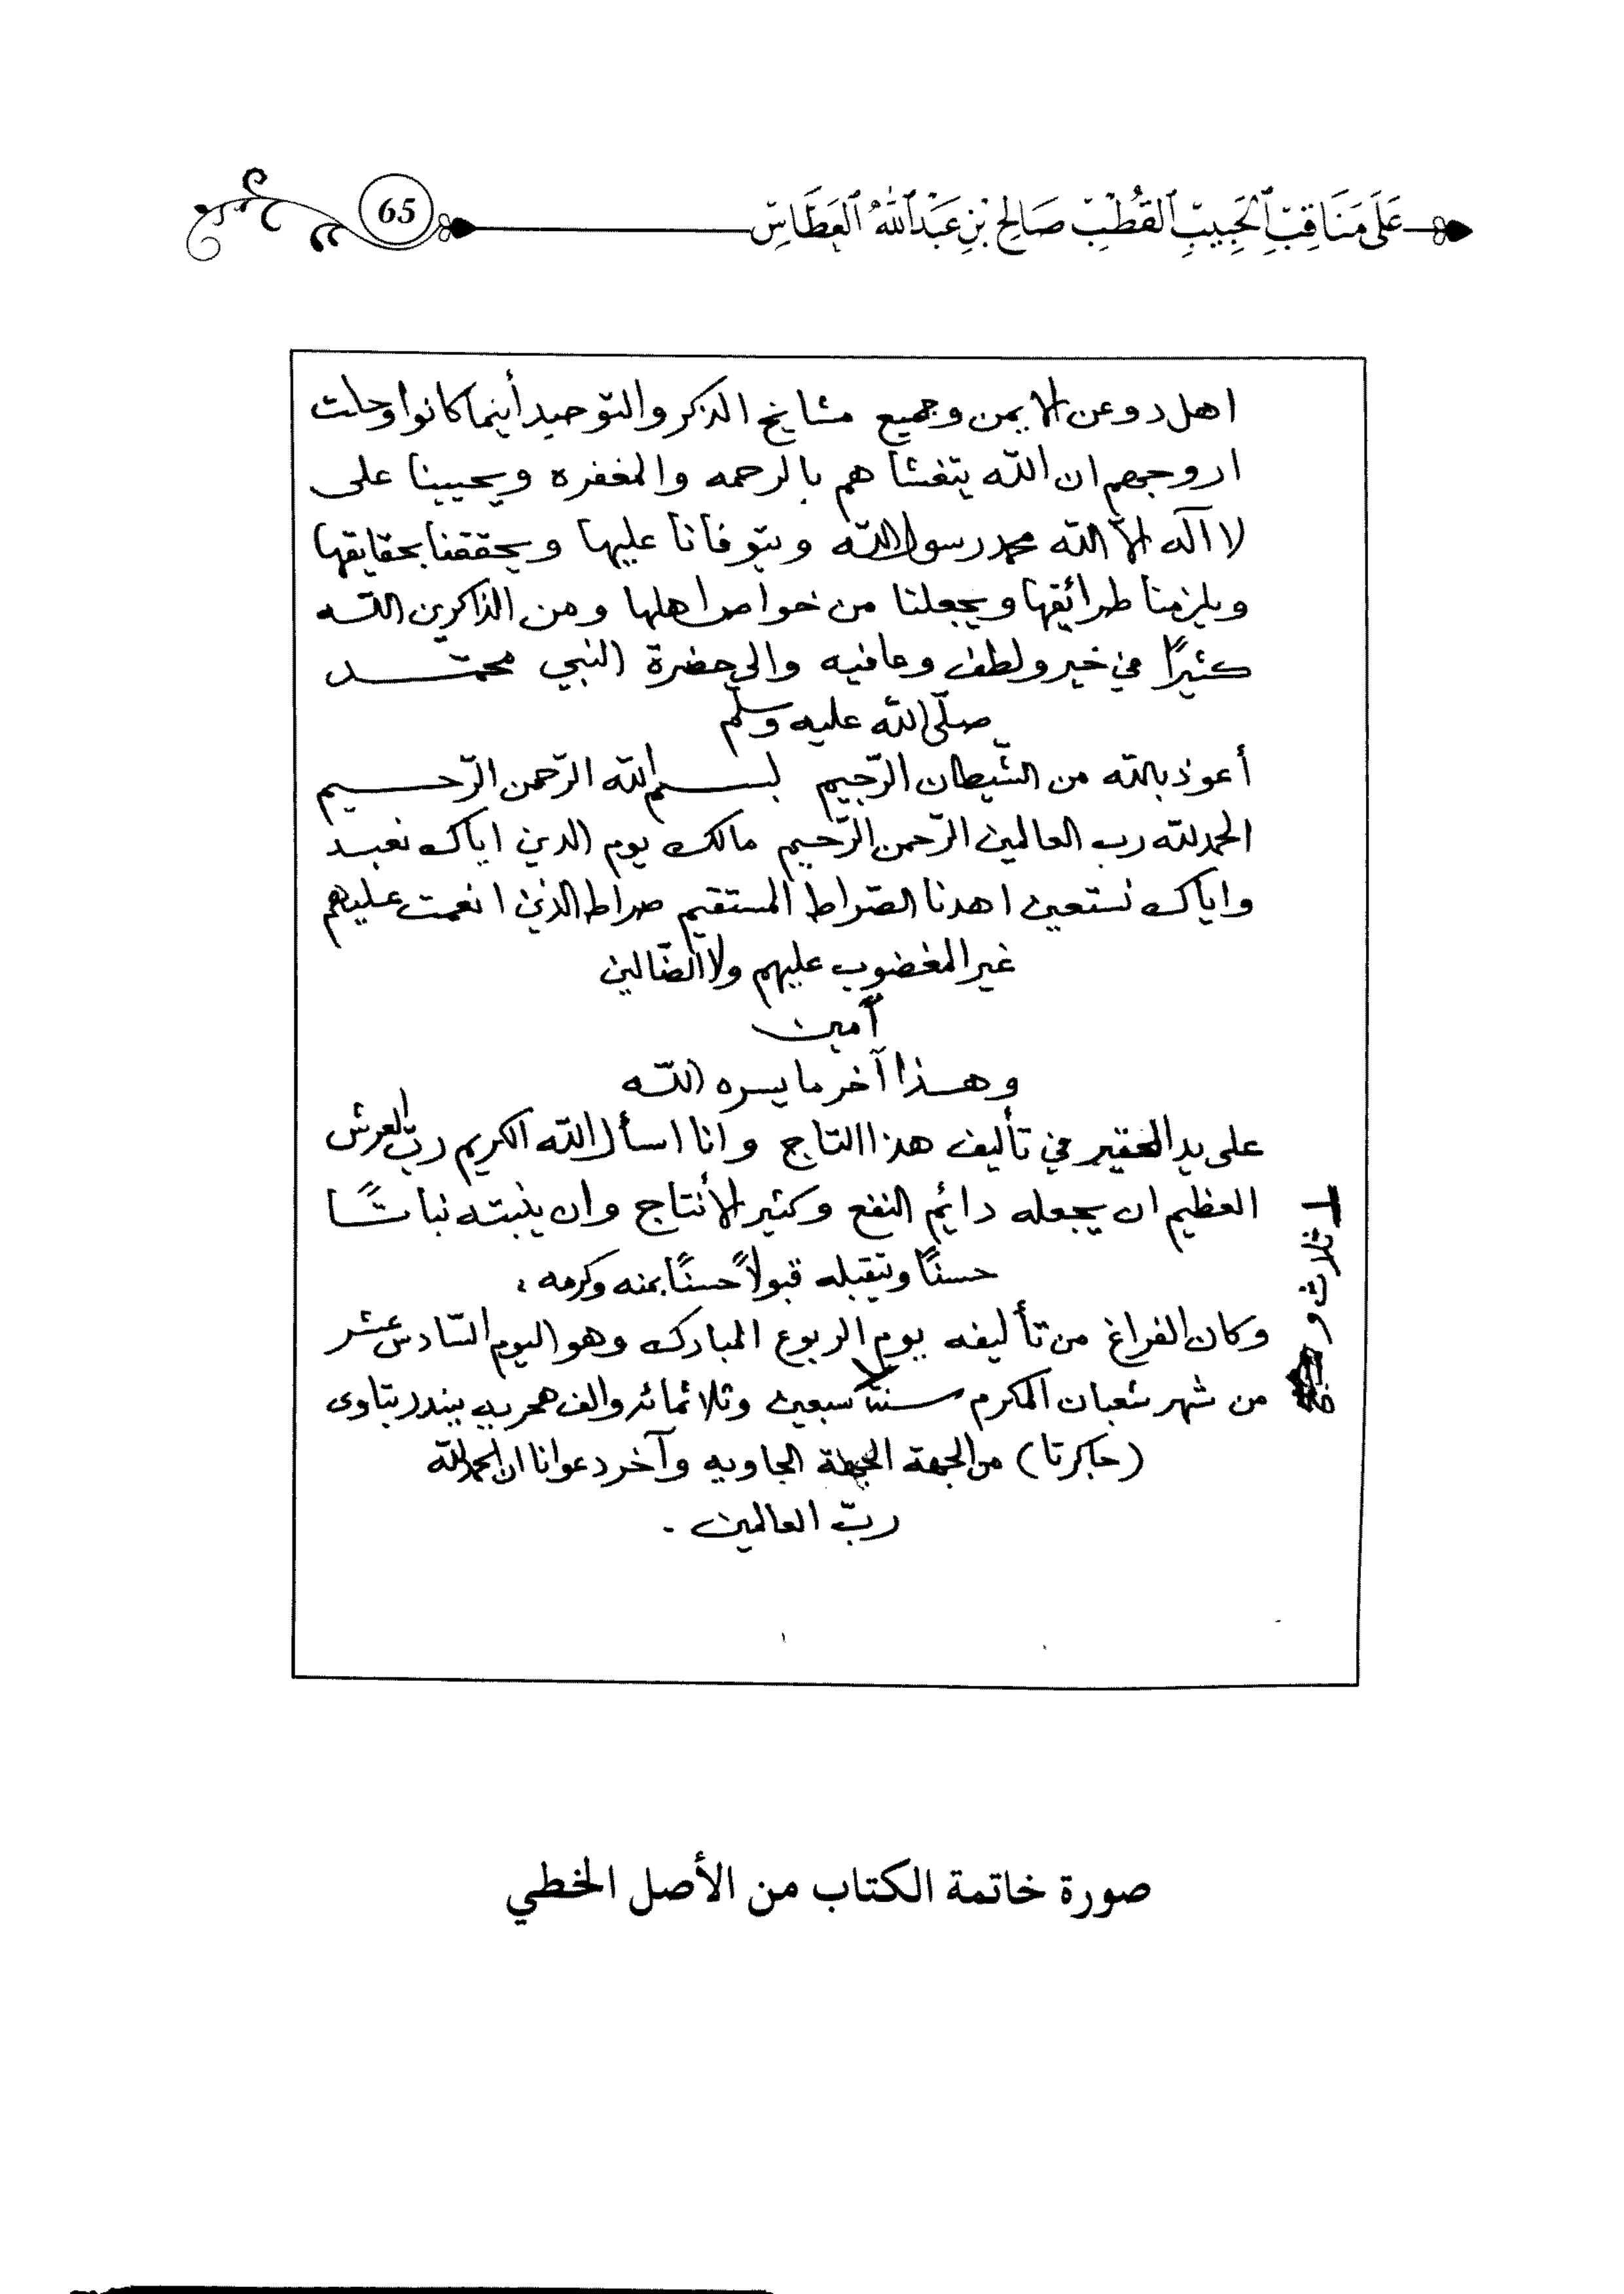 عَلَى مَنَاقِبِ الحَبِيبِ القُطْبِ صَالِحِ بْنِ عَبْدِ اللهِ العَطَّاسِ
65
اهل دوعن الايمن وجميع مشايخ الذكر والتوحيد أينما كانوا وحلت
اروحهم ان الله يتغشاهم بالرحمه والمغفره ويحيينا على
لا اله الاّ الله محمد رسول الله ويتوفانا عليها ويحققنا بحقايقها
ويلزمنا طرائقها ويجعلنا من خواص اهلها ومن الذاكرين الله
كثيرًا في خير ولطف وعافيه والى حضرة النبي محمّد
صلّى الله عليه وسلّم
أعوذ بالله من الشّيطان الرّجيم بسم الله الرّحمن الرّحيم
الحمد لله رب العالمين الرّحمن الرّحيم مالك يوم الدين اياك نعبد
واياك نستعين اهدنا الصّراط المستقيم صراط الذين انعمت عليهم
غير المغضوب عليهم ولا الضّالين
آمين
وهذا آخر ما يسره الله
على يد الحقير في تأليف هذا التاج وانا اسأل الله الكريم ربّ العرش
العظيم ان يجعله دائم النفع وكثير الأنتاج وان ينبته نباتًا
حسنًا ويتقبله قبولاً حسنًا بمنه وكرمه ،
وكان الفراغ من تأليفه يوم الربوع المبارك وهو اليوم السّادس عشر
من شهر شعبان المكرم سنة سبعين وثلاثمائه والف هجريه ببندر بتاوى
ثلاث و
(جاكرتا) من الجهة الجاويه وآخر دعوانا ان الحمد لله
ربّ العالمين .
صورة خاتمة الكتاب من الأصل الخطي